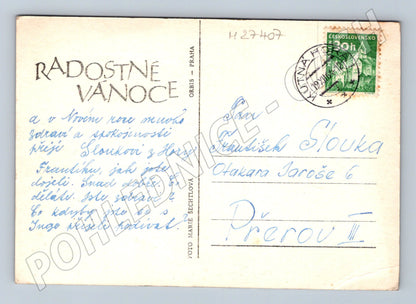 M 27407
RADOSTNÉ
VÁNOCE
a v Novém roce mnoho
zdraví a spokojenosti
přeje Sloukovi z Hor
Františku, jak jste
dojeli. Snad dobře.
Co kdyby jste se s
Ingo přijeli podívat?
FOTO MARIE ŠECHTLOVÁ
ORBIS - PRAHA
ČESKOSLOVENSKO
30h
KUTNÁ HORA
Pan
František Slouka
Otakara Jaroše 6
Přerov III
POHLEDNICE